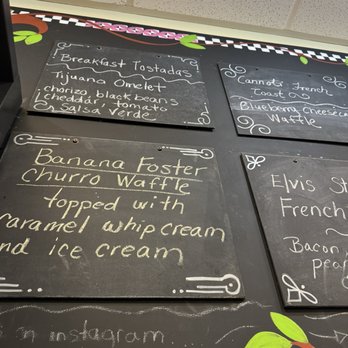 Breakfast Tostadas
Tijuana Omelet
chorizo, black beans
cheddar, tomato
Salsa Verde
Cannoli French
Toast
Blueberry Cheesec
Waffle
Banana Foster
Churro Waffle
topped with
caramel whip cream
and ice cream
Elvis St
French
Bacon
pea
s on instagram